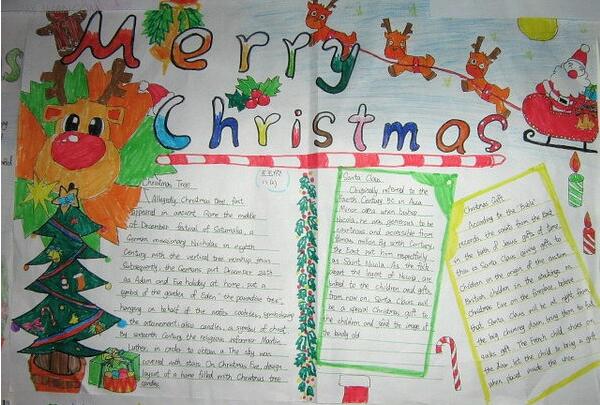 Merry
Christmas
Christmas Tree
Allegedly Christmas tree, first
appeared in ancient Rome the middle
of December festival of Saturnalia, a
German missionary Nicholas in eighth
Century with the vertical tree
Subsequently, the Germans put December 24th
as Adam and Eve holiday at home put a
symbol of the garden of Eden "the paradise tree"
hanging on behalf of the cookies, symbolizing
the atonement; also candles, a symbol of christ
by sixteenth Century, the religious reformer Martin
Luther, in order to obtain a The sky was
covered with stars On Christmas Eve, design
layout of a home filled with Christmas tree
candles
Santa Claus
Originally referred to the
fourth Century BC in Asia
Minor area when bishop
he was generous to be
courteous and accessible from
famous million. By sixth Century,
the East put him respectfully
as Saint Nicola. As the folk
about the legend of Nicola are
linked to the children and gifts,
from now on Santa Claus will
be a special Christmas gift to
the children and send the image of
the kindly old
Christmas Gift
According to the "Bible"
records, the saints from the East
in the birth of Jesus gifts of time,
this is Santa Claus giving gifts to
children in the origin of the custom.
British children in the stockings on
Christmas Eve on the fireplace, believe
that Santa Claus will be at night from
the big chimney down, bring them to full
socks gift. The French child shoes on
the door, let the child to bring a gift
when placed inside the shoe